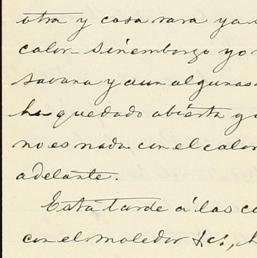 otra y cosa rara ya
calor - sinembargo yo
sabana y aun algunas
ha quedado abierta
no es nada con el calor
adelante.
Esta tarde á las
con el moledor &c.,